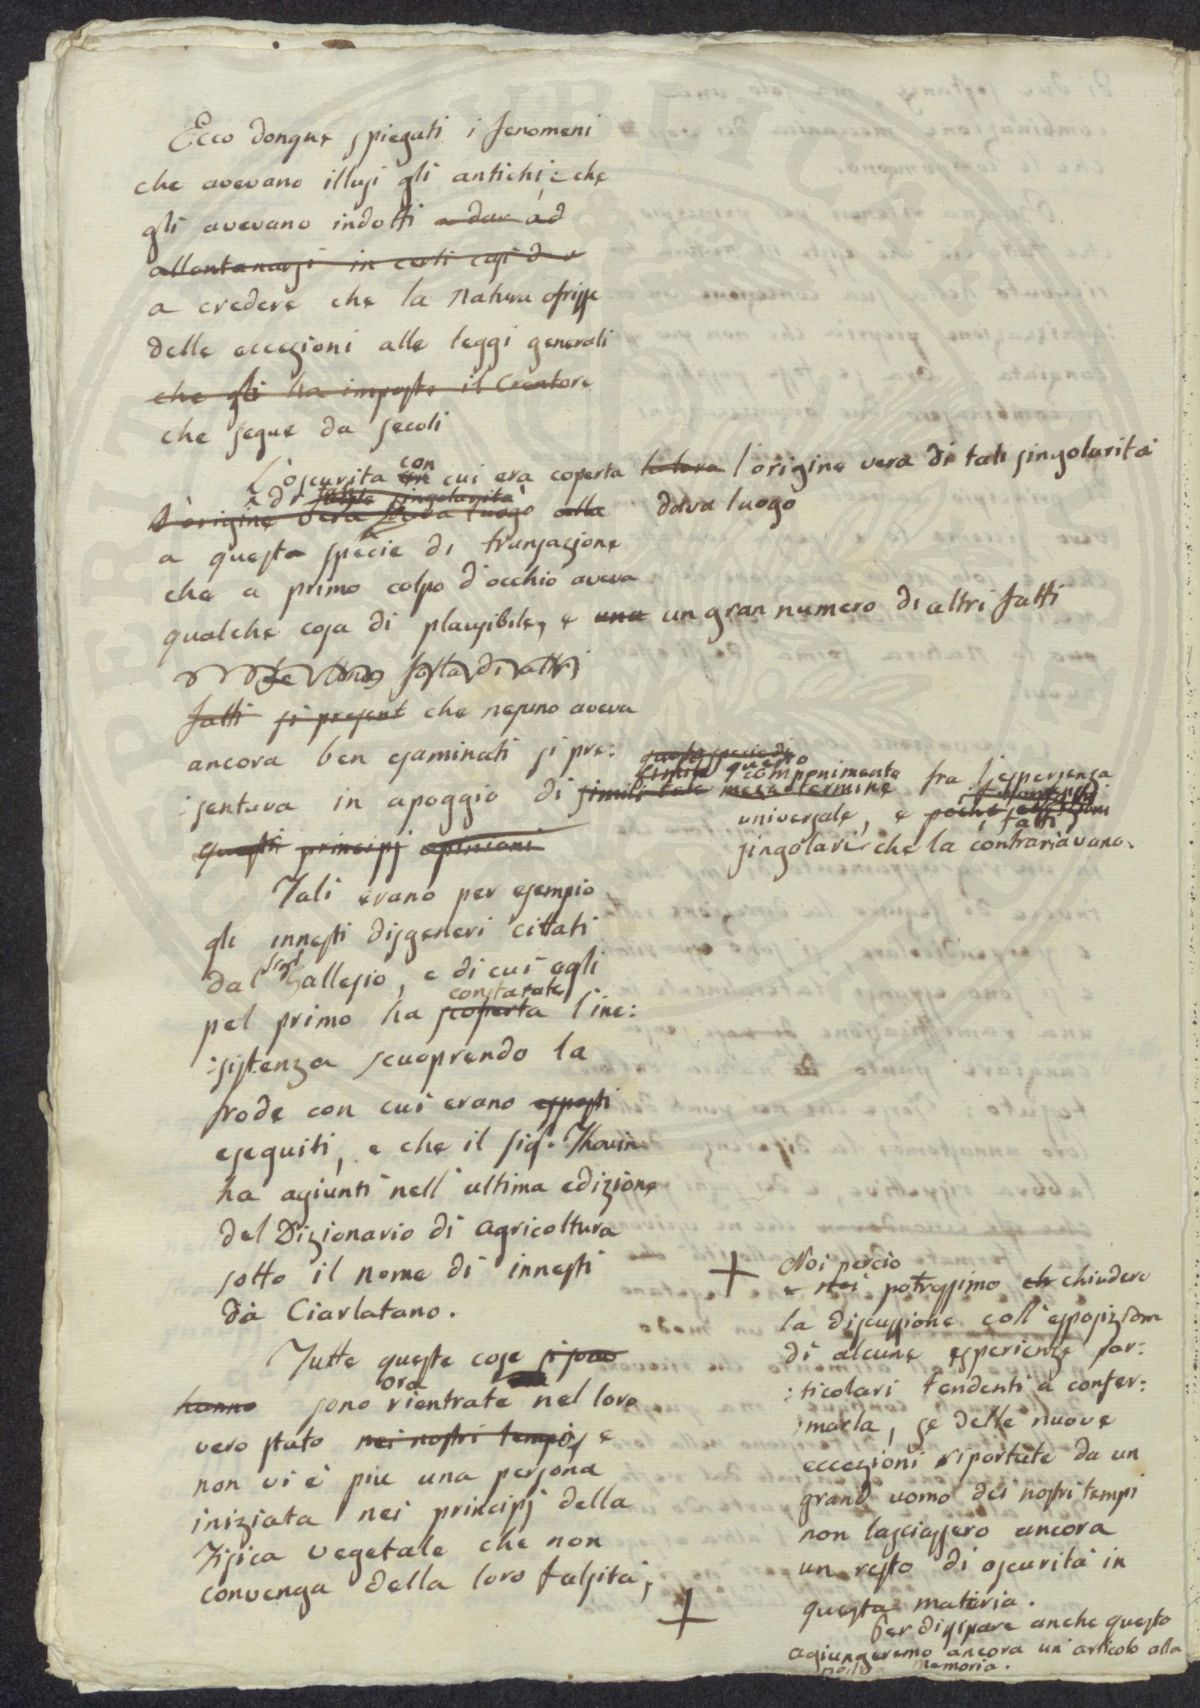 Ecco donque spiegati i fenomeni
che avevano illusi gli antichi, e che
gli avevano indotti a dar ad
allontanarsi in certi casi d
a credere che la Natura ofrisse
delle eccezioni alle leggi generali
che gli ha imposte il Creatore
che segue da secoli
L'oscurita con cui era coperta talora l'origine vera di tali singolarità
e di simile singolarità
L'origine vera dava luogo alla dava luogo
a questa specie di transazione
che a primo colpo d'occhio aveva
qualche cosa di plausibile, e una un gran numero di altri fatti
fatti si present che nessuno aveva
ancora ben esaminati si pre:
:sentava in apoggio di simili tale mezzo termine
questi principj opinioni
questa specie di
simile questo
componimento fra l'esperienza
universale, e poche eccezioni
fatti
singolari che la contrariavano.
Tali erano per esempio
gli innesti disgeneri cittati
dal Sigr Gallesio, e di cui egli
constatate
pel primo ha scoperta l'ine:
:sistenza scuoprendo la
frode con cui erano esposti
eseguiti, e che il Sigr. Thouin
ha agiunti nell'ultima edizione
del Dizionario di agricoltura
sotto il nome di innesti
da Ciarlatano.
Tutte queste cose si sono
ora
hanno sono rientrate nel loro
vero stato nei nostri tempi, e
non vi è piu una persona
iniziata nei principj della
Fisica vegetale che non
convenga della loro falsità;
+
+ Noi percio
e noi potressimo ch chiudere
la discussione coll'esposizione
di alcune esperienze par:
:ticolari tendenti a confer:
:marla, se delle nuove
eccezioni riportate da un
grand uomo dei nostri tempi
non lasciassero ancora
un resto di oscurità in
questa materia.
Per dissipare anche questo
agiungeremo ancora un articolo alla
memoria.